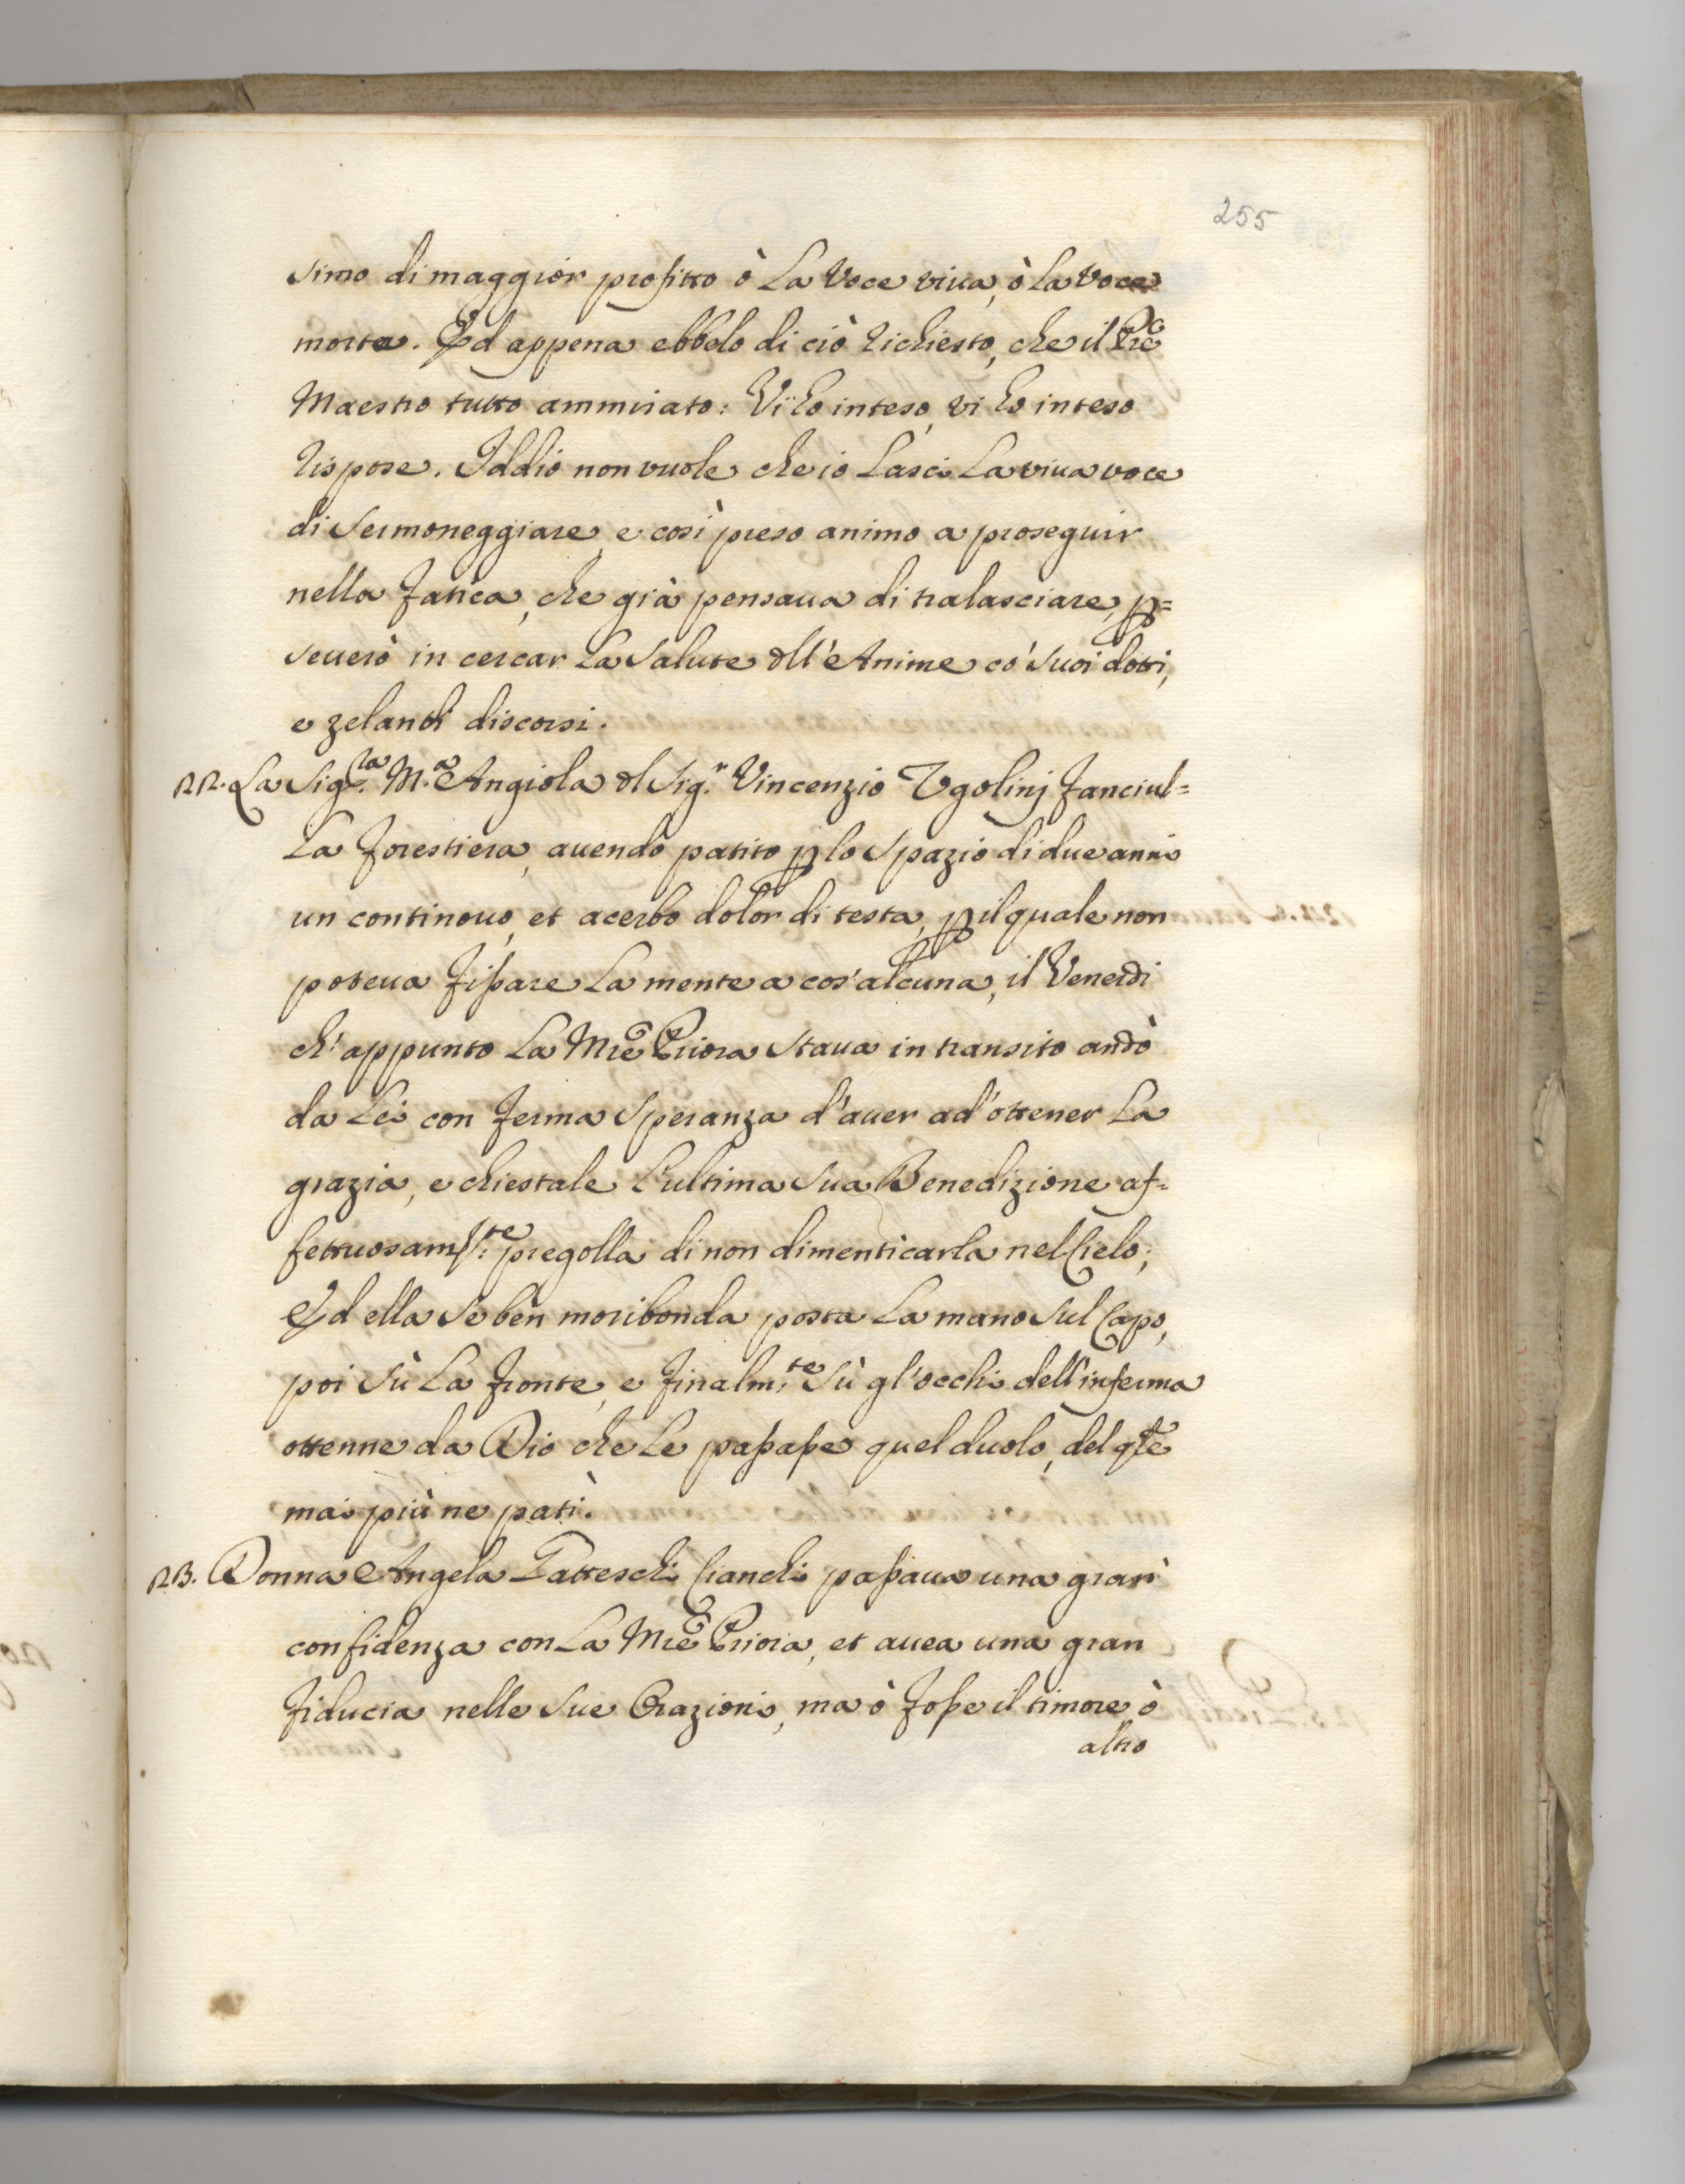 255
simo di maggior profitto ò La Voce viva, ò la Voce
morta. Ed appena ebbelo di ciò richiesto, che il Pre
Maestro tutto ammirato: Vi ho inteso, vi ho inteso
rispose. Iddio non vuole che io Lasci La viua voce
di Sermoneggiare, e così preso animo a proseguir
nella fatica, che già pensaua di tralasciare, p=
seuerò in cercar La Salute dll'Anime co' Suoi dotti,
e zelanti discorsi.
12. La Sig.ra M.a Angiola dl Sig.r Vincenzio Vgolinj fanciul=
La forestiera, auendo patito p lo Spazio di due anni
un continouo, et acerbo dolor di testa, p il quale non
poteua fissare La mente a cos'alcuna, il Venerdi
ch'appunto La Mre Priora Staua in transito andò
da Lei con ferma Speranza d'auer ad'ottener La
grazia, e chiestale l'ultima Sua Benedizione af=
fettuosam.te pregolla di non dimenticarla nel Cielo;
Ed ella Se ben moribonda posta La mano Sul Capo,
poi Sù La fronte, e finalm.te Sù gl'occhi dell'inferma
ottenne da Dio che Le passasse quel duolo, del qle
mai più ne patì.
13. Donna Angela Tatteschi Cianchi passaua una gran
confidenza con La Mre Priora, et auea una gran
fiducia nelle Sue Orazioni, ma ò fosse il timore, ò
altro